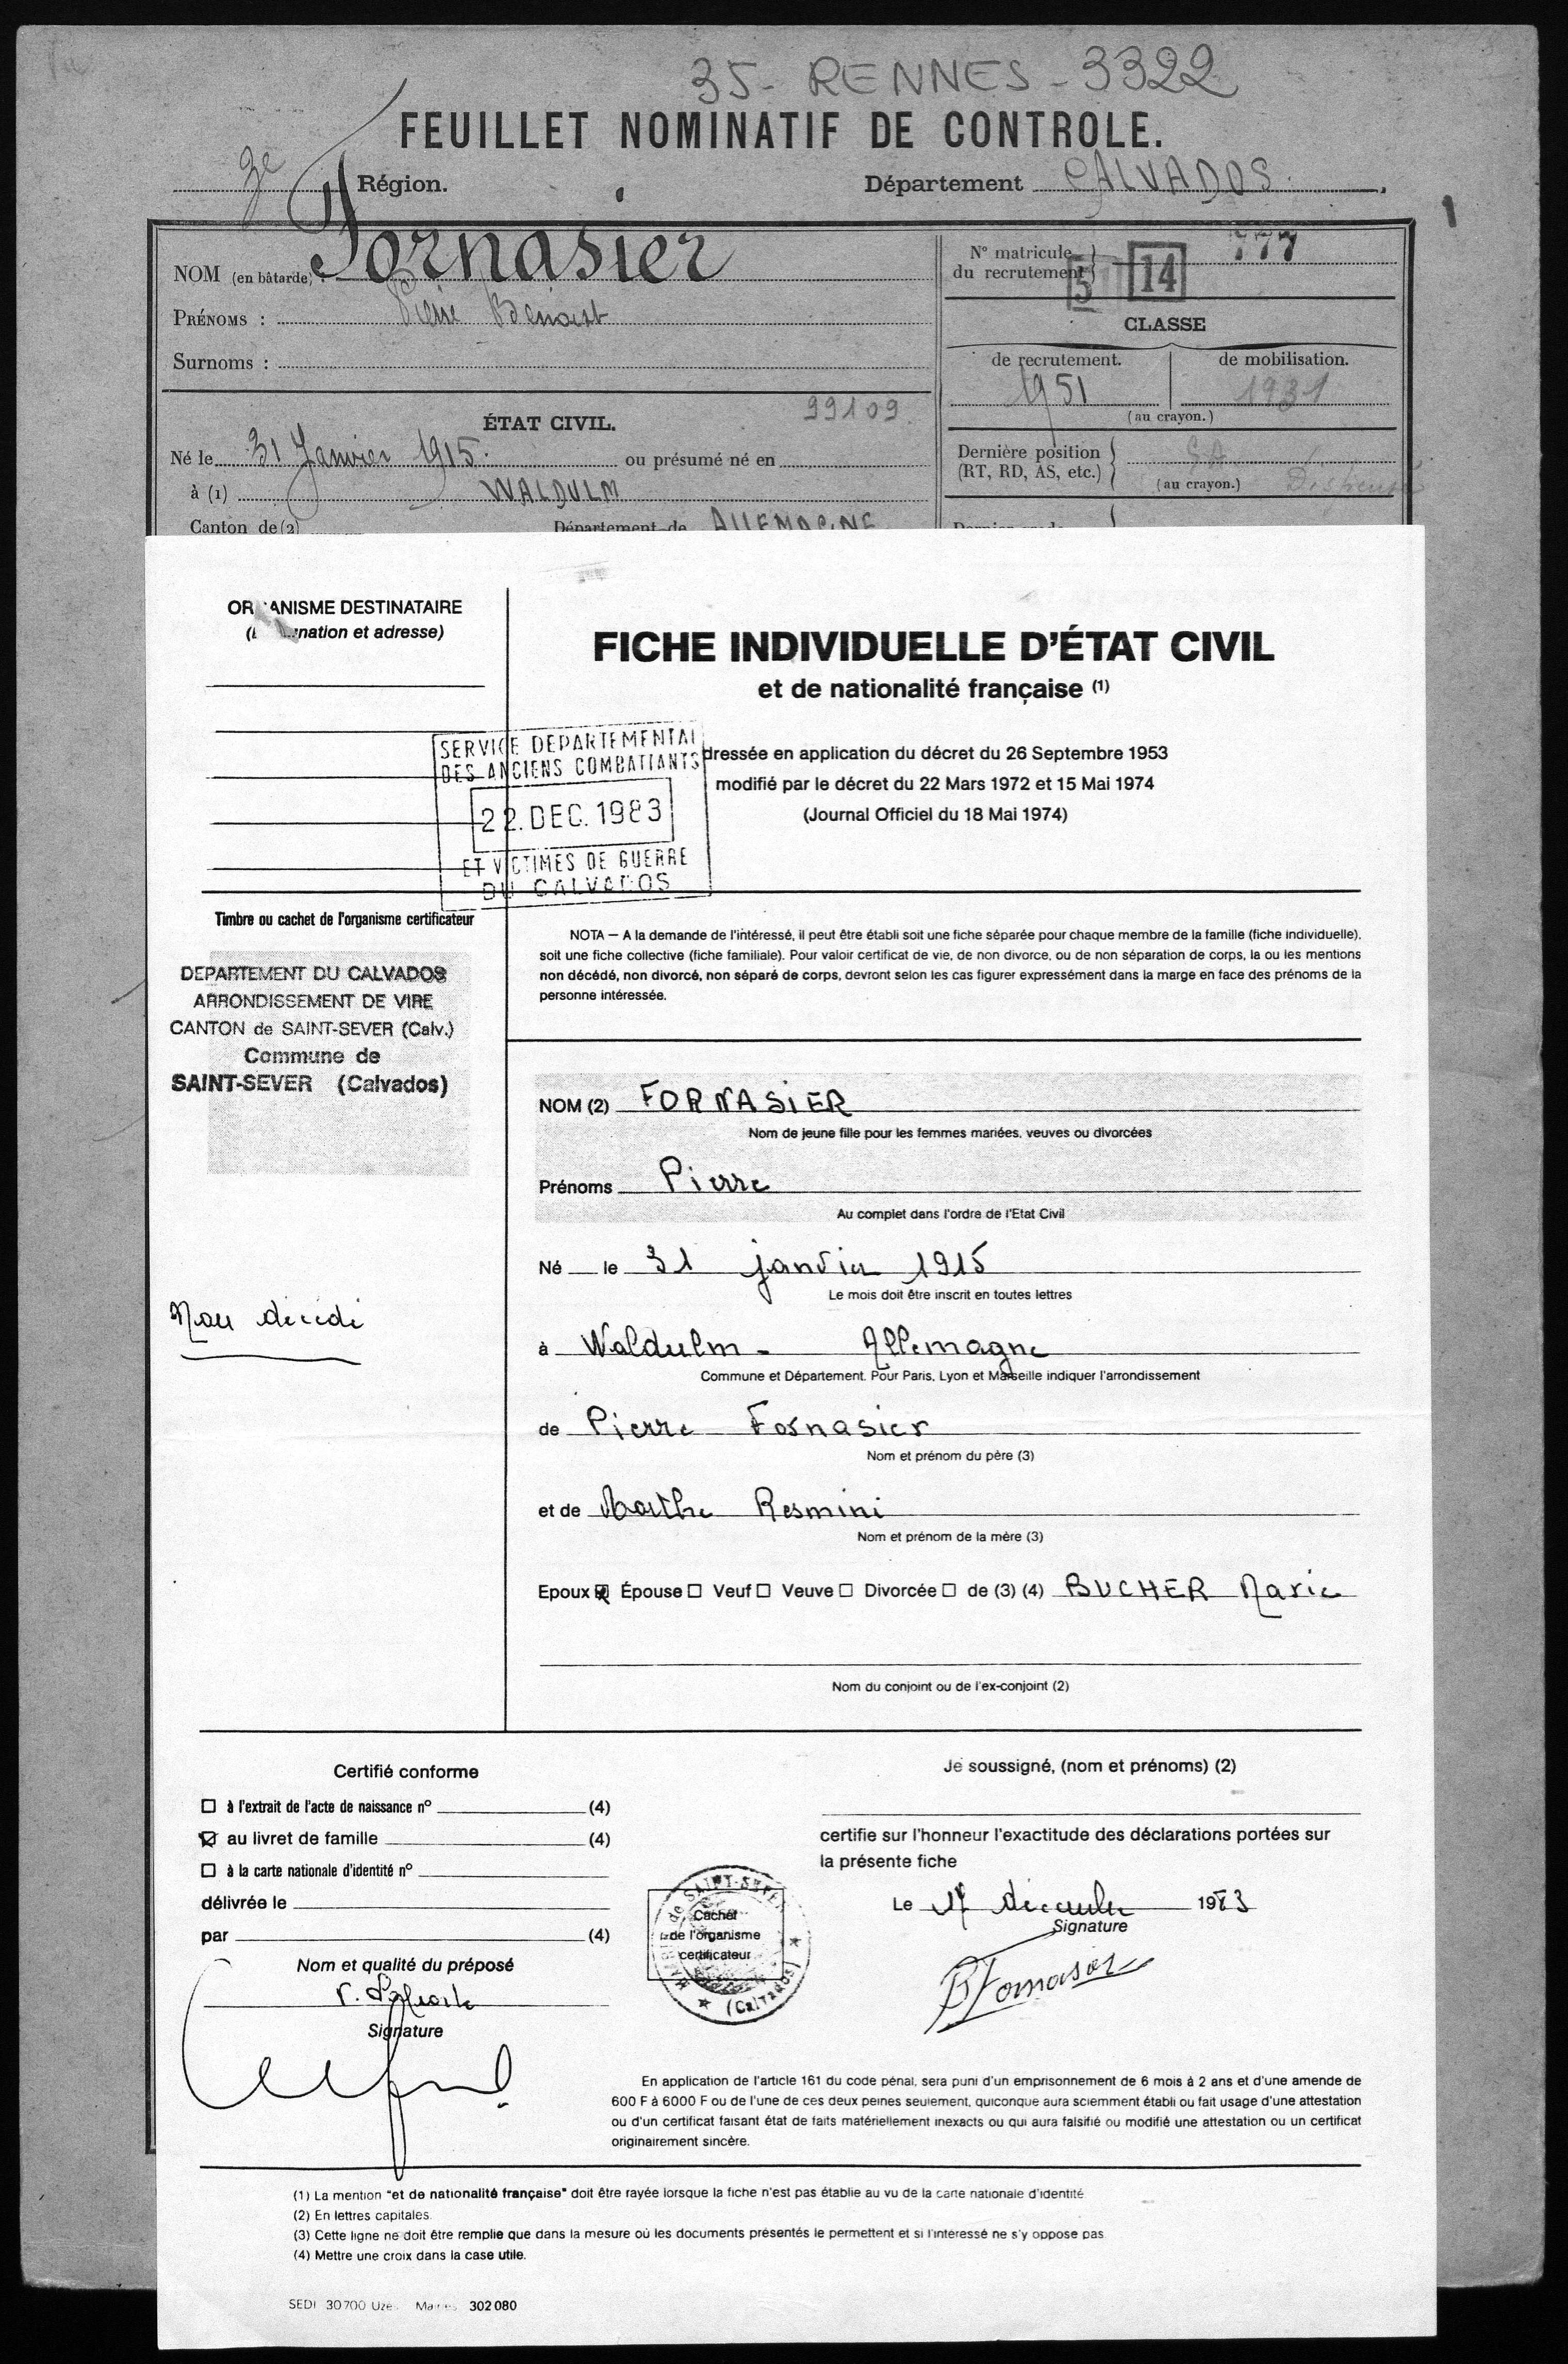 35 - RENNES - 3322
FEUILLET NOMINATIF DE CONTROLE.
3e Région.
Département CALVADOS.
NOM (en bâtarde) : Fornasier
PRÉNOMS : Pierre Benoist
Surnoms :
N° matricule du recrutement } 777
5 14
CLASSE
de recrutement. de mobilisation.
1951 1931
(au crayon.)
ÉTAT CIVIL. 99109
Né le 31 Janvier 1915. ou présumé né en
à (1) WALDULM
Canton de (2) Département de ALLEMAGNE
Dernière position
(RT, RD, AS, etc.)
(au crayon.)
ORGANISME DESTINATAIRE
nation et adresse)
FICHE INDIVIDUELLE D'ÉTAT CIVIL
et de nationalité française (1)
dressée en application du décret du 26 Septembre 1953
modifié par le décret du 22 Mars 1972 et 15 Mai 1974
(Journal Officiel du 18 Mai 1974)
SERVICE DEPARTEMENTAL
DES ANCIENS COMBATTANTS
22. DEC. 1983
ET VICTIMES DE GUERRE
DU CALVADOS
Timbre ou cachet de l'organisme certificateur
DEPARTEMENT DU CALVADOS
ARRONDISSEMENT DE VIRE
CANTON de SAINT-SEVER (Calv.)
Commune de
SAINT-SEVER (Calvados)
Non décédé
NOTA — A la demande de l'intéressé, il peut être établi soit une fiche séparée pour chaque membre de la famille (fiche individuelle),
soit une fiche collective (fiche familiale). Pour valoir certificat de vie, de non divorce, ou de non séparation de corps, la ou les mentions
non décédé, non divorcé, non séparé de corps, devront selon les cas figurer expressément dans la marge en face des prénoms de la
personne intéressée.
NOM (2) FORNASIER
Nom de jeune fille pour les femmes mariées, veuves ou divorcées
Prénoms Pierre
Au complet dans l'ordre de l'Etat Civil
Né le 31 janvier 1915
Le mois doit être inscrit en toutes lettres
à Waldulm - Allemagne
Commune et Département. Pour Paris, Lyon et Marseille indiquer l'arrondissement
de Pierre Fornasier
Nom et prénom du père (3)
et de Marthe Resmini
Nom et prénom de la mère (3)
Epoux ☒ Épouse ☐ Veuf ☐ Veuve ☐ Divorcée ☐ de (3) (4) BUCHER Marie
Nom du conjoint ou de l'ex-conjoint (2)
Certifié conforme
☐ à l'extrait de l'acte de naissance n° (4)
☒ au livret de famille (4)
☐ à la carte nationale d'identité n°
délivrée le
par (4)
Nom et qualité du préposé
Signature
Cachet
de l'organisme
certificateur
(Calvados)
Je soussigné, (nom et prénoms) (2)
certifie sur l'honneur l'exactitude des déclarations portées sur
la présente fiche
Le 17 décembre 1983
Signature
BFornasier
En application de l'article 161 du code pénal, sera puni d'un emprisonnement de 6 mois à 2 ans et d'une amende de
600 F à 6000 F ou de l'une de ces deux peines seulement, quiconque aura sciemment établi ou fait usage d'une attestation
ou d'un certificat faisant état de faits matériellement inexacts ou qui aura falsifié ou modifié une attestation ou un certificat
originairement sincère.
(1) La mention "et de nationalité française" doit être rayée lorsque la fiche n'est pas établie au vu de la carte nationale d'identité
(2) En lettres capitales.
(3) Cette ligne ne doit être remplie que dans la mesure où les documents présentés le permettent et si l'intéressé ne s'y oppose pas
(4) Mettre une croix dans la case utile.
SEDI 30700 Uzès Mairies 302 080